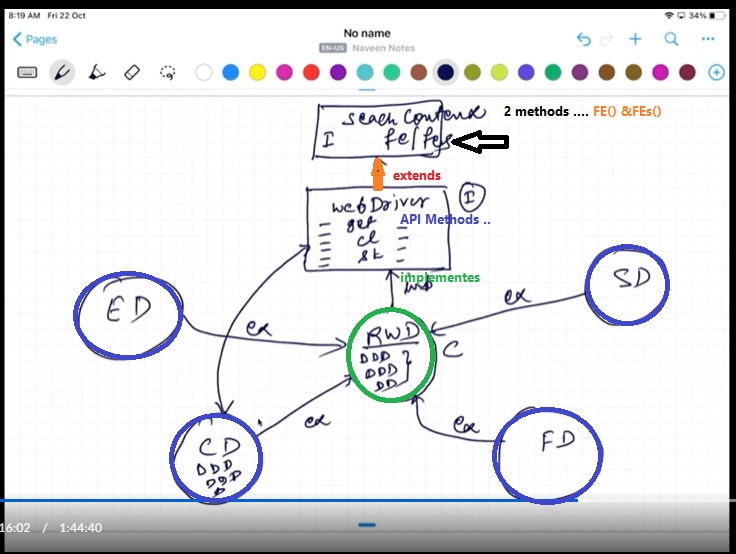 8:19 AM Fri 22 Oct
34%
Pages
No name
EN-US Naveen Notes
Seach Context
I fe/fes
2 methods .... FE() &FEs()
extends
WebDriver
I
get
API Methods ..
cl
implementes
ED
SD
ex
ex
RWD
C
DDD
DDD
DD
ex
ex
CD
FD
DDD
DDD
D
16:02 / 1:44:40